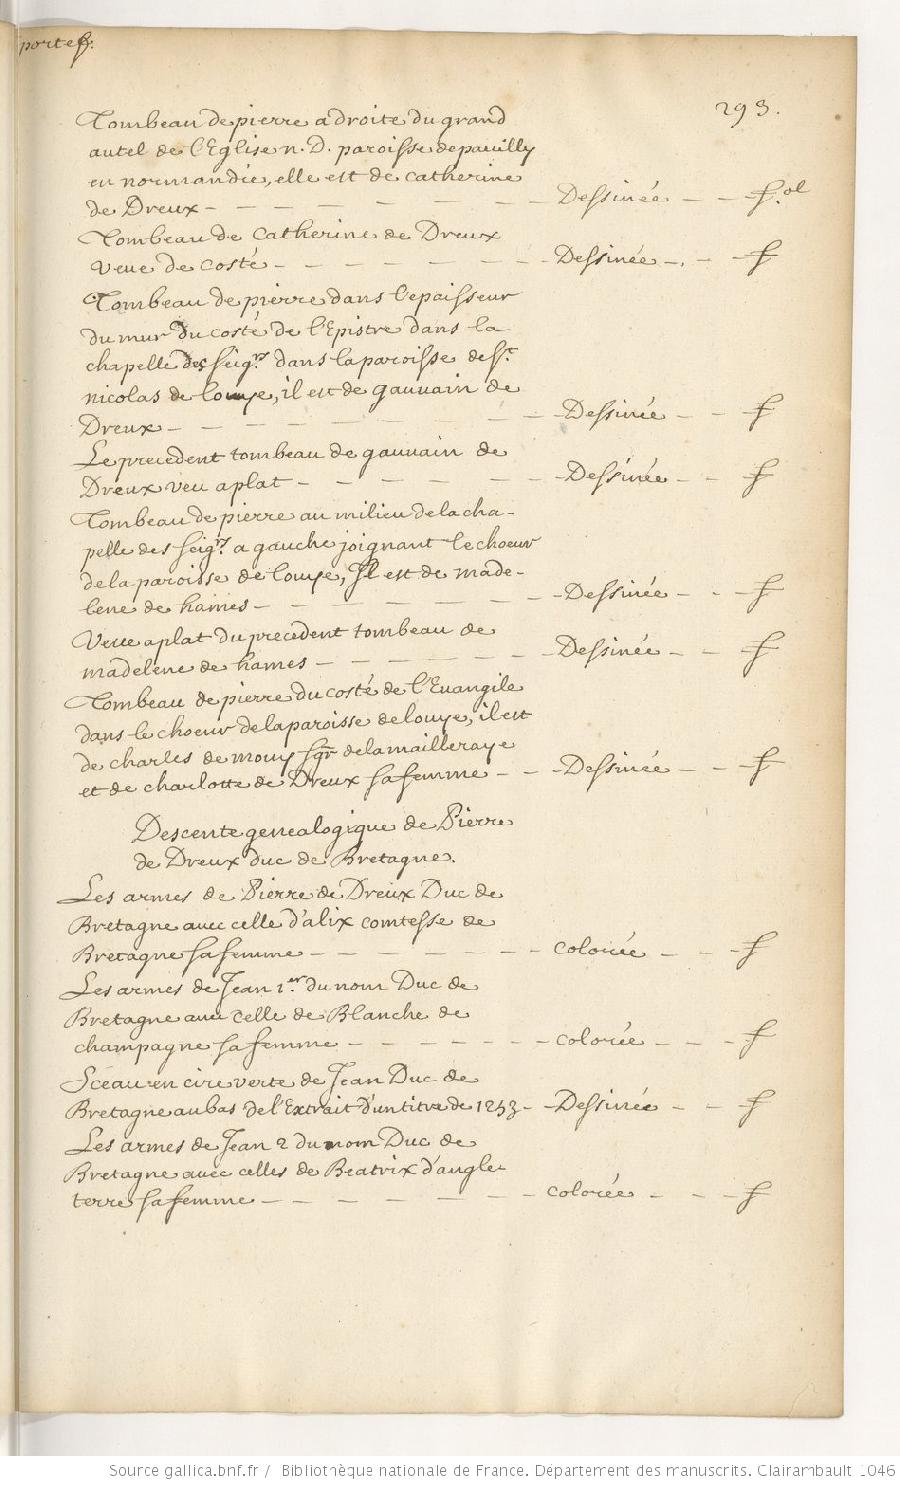 portef.
293.
Tombeau de pierre a droite du grand
autel de l'Eglise n. D. paroisse de pauilly
en normandie, elle est de catherine
de Dreux - - - - - - - Dessinée - - f.ol
Tombeau de Catherine de Dreux
veue de costé - - - - - - Dessinée - - f
Tombeau de pierre dans l'epaisseur
du mur du costé de l'Epistre dans la
chapelle des seigrs dans la paroisse de st
nicolas de louye, il est de gauuain de
Dreux - - - - - - - Dessinée - - f
Le precedent tombeau de gauuain de
Dreux veu a plat - - - - - Dessinée - - f
Tombeau de pierre au milieu de la cha-
pelle des seigrs a gauche joignant le choeur
de la paroisse de louye, Il est de made-
lene de hames - - - - - - Dessinée - - f
Veue a plat du precedent tombeau de
madelene de hames - - - - - Dessinée - - f
Tombeau de pierre du costé de l'Euangile
dans le choeur de la paroisse de louye, il est
de charles de mouy sgr de la mailleraye
et de charlotte de Dreux sa femme - - Dessinée - - f
Descente genealogique de Pierre
de Dreux duc de Bretagne.
Les armes de Pierre de Dreux Duc de
Bretagne auec celle d'alix comtesse de
Bretagne sa femme - - - - - - colorée - - f
Les armes de Jean 1er du nom Duc de
Bretagne auec celle de Blanche de
champagne sa femme - - - - - colorée - - f
Sceau en cire verte de Jean Duc de
Bretagne au bas de l'Extrait d'un titre de 1253 - Dessinée - - f
Les armes de Jean 2 du nom Duc de
Bretagne auec celles de Beatrix d'angle
terre sa femme - - - - - - colorée - - f
Source gallica.bnf.fr / Bibliothèque nationale de France. Département des manuscrits. Clairambault 1046